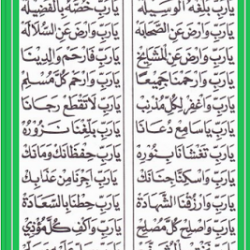 يَارَبِّ بَلِّغْهُ الْوَسِيْلَهْ يَارَبِّ خُصَّهْ بِالْفَضِيْلَهْ
يَارَبِّ وَارْضَ عَنِ الصَّحَابَهْ يَارَبِّ وَارْضَ عَنِ السُّلَالَهْ
يَارَبِّ وَارْضَ عَنِ الْمَشَايِخْ يَارَبِّ فَارْحَمْ وَالِدِيْنَا
يَارَبِّ وَارْحَمْنَا جَمِيْعًا يَارَبِّ وَارْحَمْ كُلَّ مُسْلِمْ
يَارَبِّ وَاغْفِرْ لِكُلِّ مُذْنِبْ يَارَبِّ لَاتَقْطَعْ رَجَانَا
يَارَبِّ يَاسَامِعْ دُعَانَا يَارَبِّ بَلِّغْنَا نَزُوْرُهْ
يَارَبِّ تَغْشَانَا بِنُوْرِهْ يَارَبِّ حِفْظَانَكْ وَمَانَكْ
يَارَبِّ وَاسْكِنَّا جِنَانَكْ يَارَبِّ اَجِرْنَا مِنْ عَذَابِكْ
يَارَبِّ وَارْزُقْنَا الشَّهَادَةْ يَارَبِّ حِطْنَا بِالسَّعَادَةْ
يَارَبِّ وَاصْلِحْ كُلَّ مُصْلِحْ يَارَبِّ وَاكْفِ كُلَّ مُؤْذِيْ